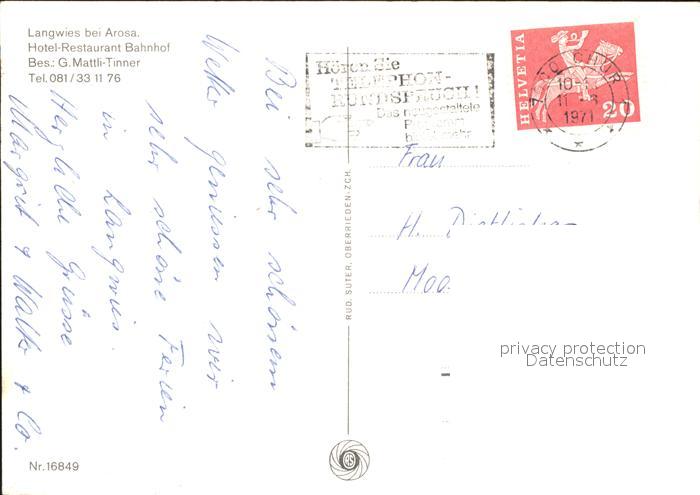 Langwies bei Arosa.
Hotel-Restaurant Bahnhof
Bes.: G. Mattli-Tinner
Tel. 081/33 11 76
Bei sehr schönem
Wetter geniessen wir
sehr schöne Ferien
in Langwies.
Herzliche Grüsse
Margrit & Walter & Co.
Nr. 16849
RUD. SUTER, OBERRIEDEN-ZCH.
Hören Sie
TELEPHON-
RUNDSPRUCH!
Das neugestaltete
HELVETIA
20
CHUR
1971
Frau
H.
Moo
privacy protection
Datenschutz
RS